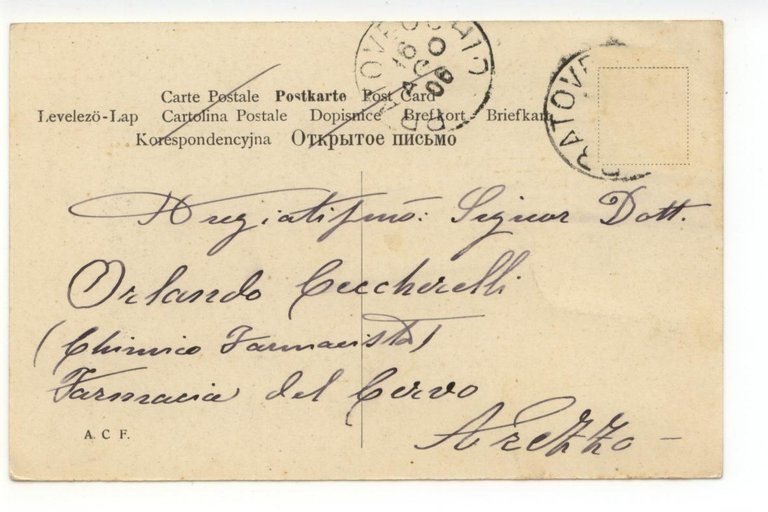 PRATOVECCHIO
16 AGO 06
PRATOVE
Carte Postale Postkarte Post Card
Levelező-Lap Cartolina Postale Dopisnice Brefkort Briefkart
Korespondencyjna Открытое письмо
Pregiatissmo: Signor Dott.
Orlando Ceccherelli
(Chimico Farmacista)
Farmacia del Cervo
Arezzo –
A. C F.